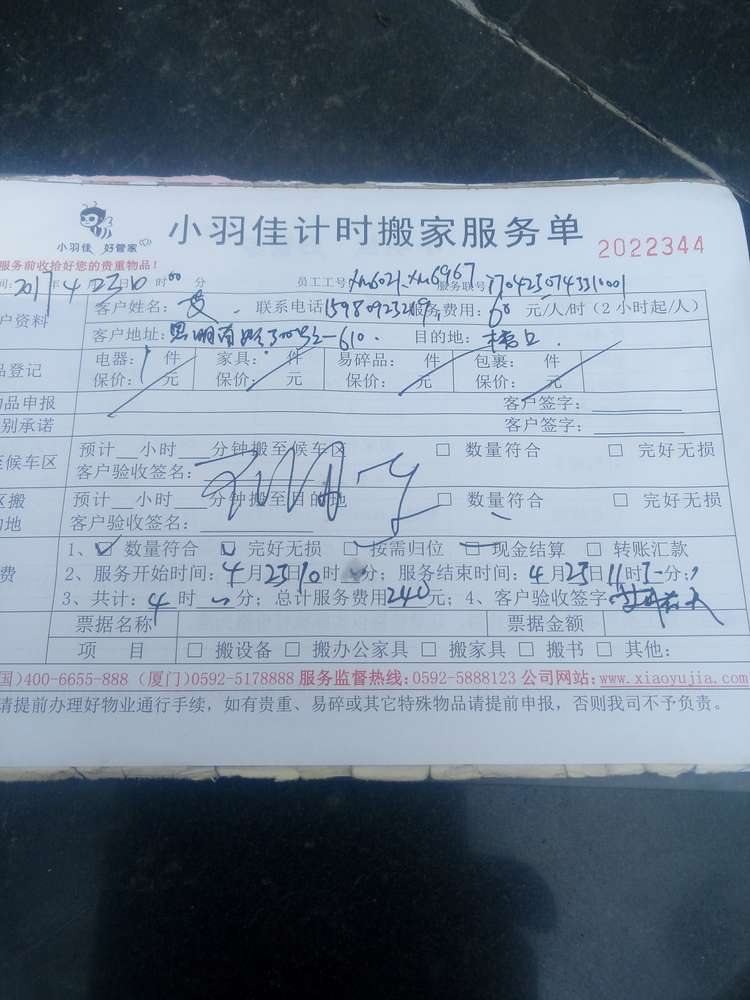 小羽佳 好管家
小羽佳计时搬家服务单
2022344
服务前收拾好您的贵重物品!
间: 2017年4月23日10时00分 员工工号xm6021.xm6967 服务联号1704230743310001
户资料 客户姓名: 联系电话 服务费用:60元/人/时(2小时起/人)
客户地址:思明南路 -610. 目的地:
品登记 电器: 件 家具: 件 易碎品: 件 包裹: 件
保价: 元 保价: 元 保价: 元 保价: 元
物品申报 客户签字:
别承诺 客户签字:
至候车区 预计__小时___分钟搬至候车区 □ 数量符合 □ 完好无损
客户验收签名:
区搬 预计__小时___分钟搬至目的地 □ 数量符合 □ 完好无损
的地 客户验收签名:
1、☑ 数量符合 ☑ 完好无损 □ 按需归位 □ 现金结算 □ 转账汇款
费 2、服务开始时间:4月23日10时 分;服务结束时间:4月23日11时 分;
3、共计:4时 分;总计服务费用240元;4、客户验收签字
票据名称 票据金额
项 目 □ 搬设备 □ 搬办公家具 □ 搬家具 □ 搬书 □ 其他:
国)400-6655-888 (厦门)0592-5178888 服务监督热线:0592-5888123 公司网站:www.xiaoyujia.com
请提前办理好物业通行手续,如有贵重、易碎或其它特殊物品请提前申报,否则我司不予负责。